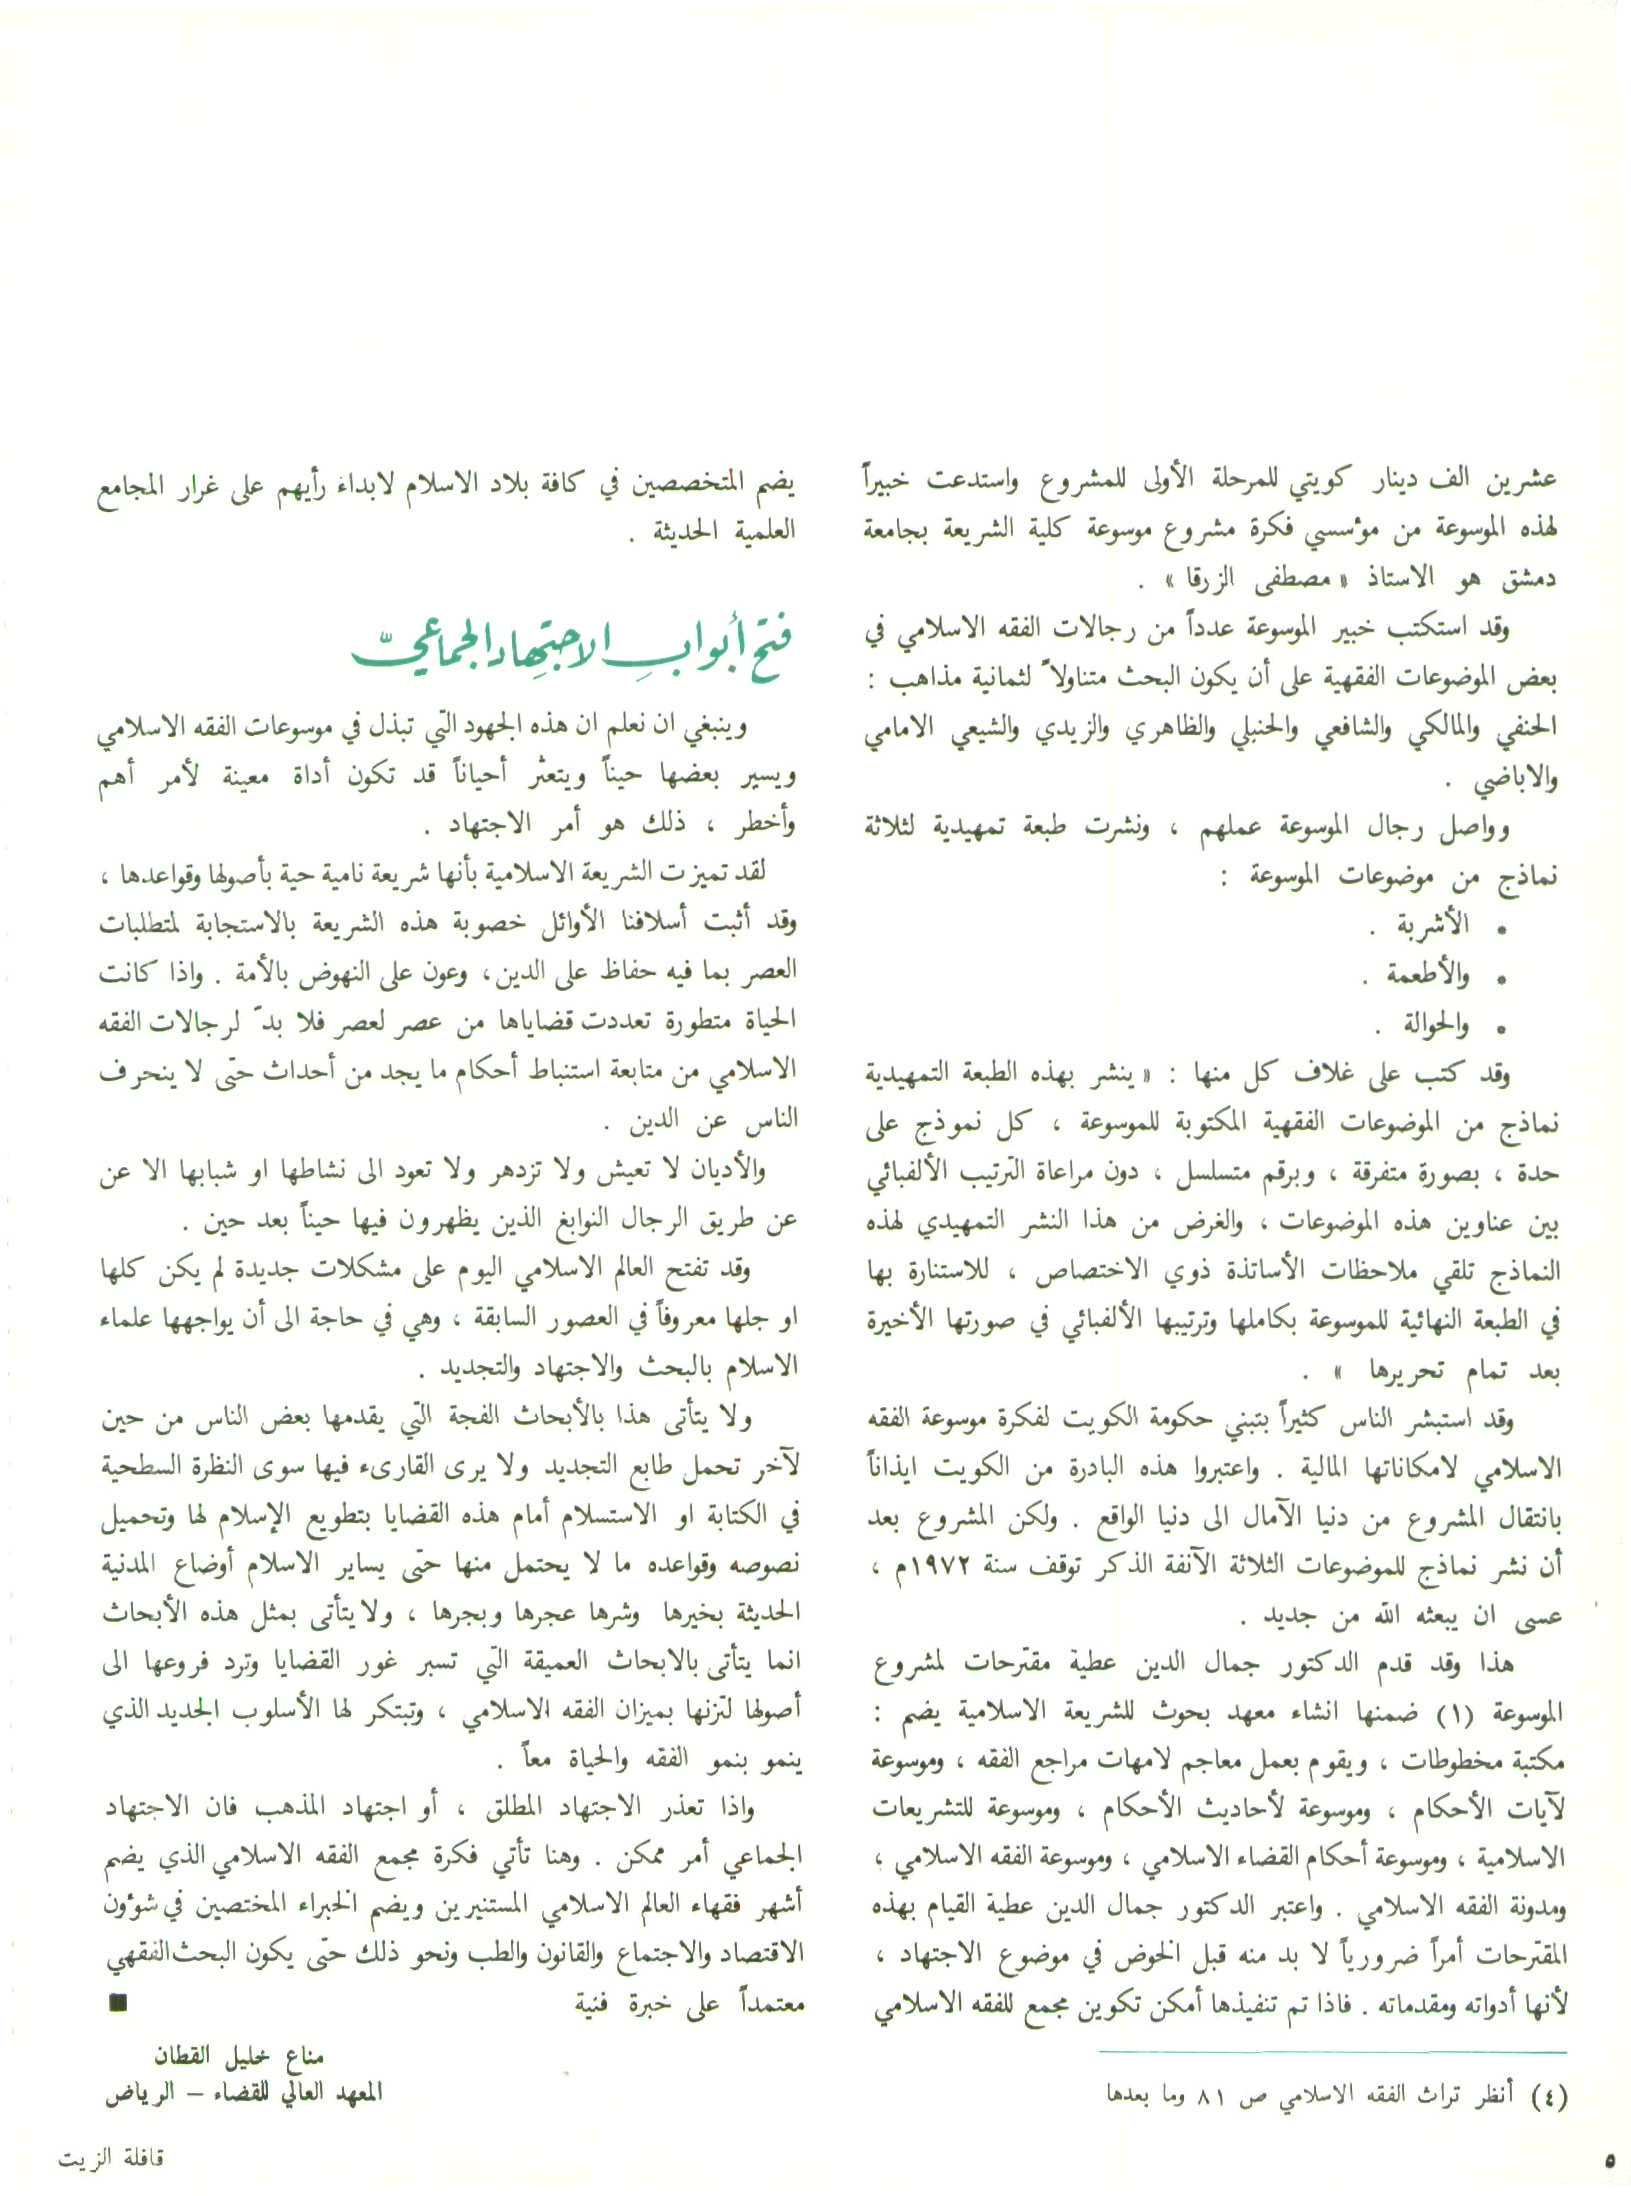 عشرين الف دينار كويتي للمرحلة الأولى للمشروع واستدعت خبيراً
لهذه الموسوعة من مؤسسي فكرة مشروع موسوعة كلية الشريعة بجامعة
دمشق هو الاستاذ « مصطفى الزرقا » .
وقد استكتب خبير الموسوعة عدداً من رجالات الفقه الاسلامي في
بعض الموضوعات الفقهية على أن يكون البحث متناولاً لثمانية مذاهب :
الحنفي والمالكي والشافعي والحنبلي والظاهري والزيدي والشيعي الامامي
والاباضي .
وواصل رجال الموسوعة عملهم ، ونشرت طبعة تمهيدية لثلاثة
نماذج من موضوعات الموسوعة :
• الأشربة .
• والأطعمة .
• والحوالة .
وقد كتب على غلاف كل منها : « ينشر بهذه الطبعة التمهيدية
نماذج من الموضوعات الفقهية المكتوبة للموسوعة ، كل نموذج على
حدة ، بصورة متفرقة ، وبرقم متسلسل ، دون مراعاة الترتيب الألفبائي
بين عناوين هذه الموضوعات ، والغرض من هذا النشر التمهيدي لهذه
النماذج تلقي ملاحظات الأساتذة ذوي الاختصاص ، للاستنارة بها
في الطبعة النهائية للموسوعة بكاملها وترتيبها الألفبائي في صورتها الأخيرة
بعد تمام تحريرها » .
وقد استبشر الناس كثيراً بتبني حكومة الكويت لفكرة موسوعة الفقه
الاسلامي لامكاناتها المالية . واعتبروا هذه البادرة من الكويت ايذاناً
بانتقال المشروع من دنيا الآمال الى دنيا الواقع . ولكن المشروع بعد
أن نشر نماذج للموضوعات الثلاثة الآنفة الذكر توقف سنة ١٩٧٢م ،
عسى ان يبعثه الله من جديد .
هذا وقد قدم الدكتور جمال الدين عطية مقترحات لمشروع
الموسوعة (١) ضمنها انشاء معهد بحوث للشريعة الاسلامية يضم :
مكتبة مخطوطات ، ويقوم بعمل معاجم لامهات مراجع الفقه ، وموسوعة
لآيات الأحكام ، وموسوعة لأحاديث الأحكام ، وموسوعة للتشريعات
الاسلامية ، وموسوعة أحكام القضاء الاسلامي ، وموسوعة الفقه الاسلامي ،
ومدونة الفقه الاسلامي . واعتبر الدكتور جمال الدين عطية القيام بهذه
المقترحات أمراً ضرورياً لا بد منه قبل الخوض في موضوع الاجتهاد ،
لأنها أدواته ومقدماته . فاذا تم تنفيذها أمكن تكوين مجمع للفقه الاسلامي
(٤) أنظر تراث الفقه الاسلامي ص ٨١ وما بعدها
يضم المتخصصين في كافة بلاد الاسلام لابداء رأيهم على غرار المجامع
العلمية الحديثة .
فتح أبواب الاجتهاد الجماعيّ
وينبغي ان نعلم ان هذه الجهود التي تبذل في موسوعات الفقه الاسلامي
ويسير بعضها حيناً ويتعثر أحياناً قد تكون أداة معينة لأمر أهم
وأخطر ، ذلك هو أمر الاجتهاد .
لقد تميزت الشريعة الاسلامية بأنها شريعة نامية حية بأصولها وقواعدها ،
وقد أثبت أسلافنا الأوائل خصوبة هذه الشريعة بالاستجابة لمتطلبات
العصر بما فيه حفاظ على الدين ، وعون على النهوض بالأمة . واذا كانت
الحياة متطورة تعددت قضاياها من عصر لعصر فلا بدّ لرجالات الفقه
الاسلامي من متابعة استنباط أحكام ما يجد من أحداث حتى لا ينحرف
الناس عن الدين .
والأديان لا تعيش ولا تزدهر ولا تعود الى نشاطها او شبابها الا عن
عن طريق الرجال النوابغ الذين يظهرون فيها حيناً بعد حين .
وقد تفتح العالم الاسلامي اليوم على مشكلات جديدة لم يكن كلها
او جلها معروفاً في العصور السابقة ، وهي في حاجة الى أن يواجهها علماء
الاسلام بالبحث والاجتهاد والتجديد .
ولا يتأتى هذا بالأبحاث الفجة التي يقدمها بعض الناس من حين
لآخر تحمل طابع التجديد ولا يرى القارىء فيها سوى النظرة السطحية
في الكتابة او الاستسلام أمام هذه القضايا بتطويع الإسلام لها وتحميل
نصوصه وقواعده ما لا يحتمل منها حتى يساير الاسلام أوضاع المدنية
الحديثة بخيرها وشرها عجرها وبجرها ، ولا يتأتى بمثل هذه الأبحاث
انما يتأتى بالابحاث العميقة التي تسبر غور القضايا وترد فروعها الى
أصولها لتزنها بميزان الفقه الاسلامي ، وتبتكر لها الأسلوب الجديد الذي
ينمو بنمو الفقه والحياة معاً .
واذا تعذر الاجتهاد المطلق ، أو اجتهاد المذهب فان الاجتهاد
الجماعي أمر ممكن . وهنا تأتي فكرة مجمع الفقه الاسلامي الذي يضم
أشهر فقهاء العالم الاسلامي المستنيرين ويضم الخبراء المختصين في شؤون
الاقتصاد والاجتماع والقانون والطب ونحو ذلك حتى يكون البحث الفقهي
معتمداً على خبرة فنية ■
مناع خليل القطان
المعهد العالي للقضاء – الرياض
٥
قافلة الزيت